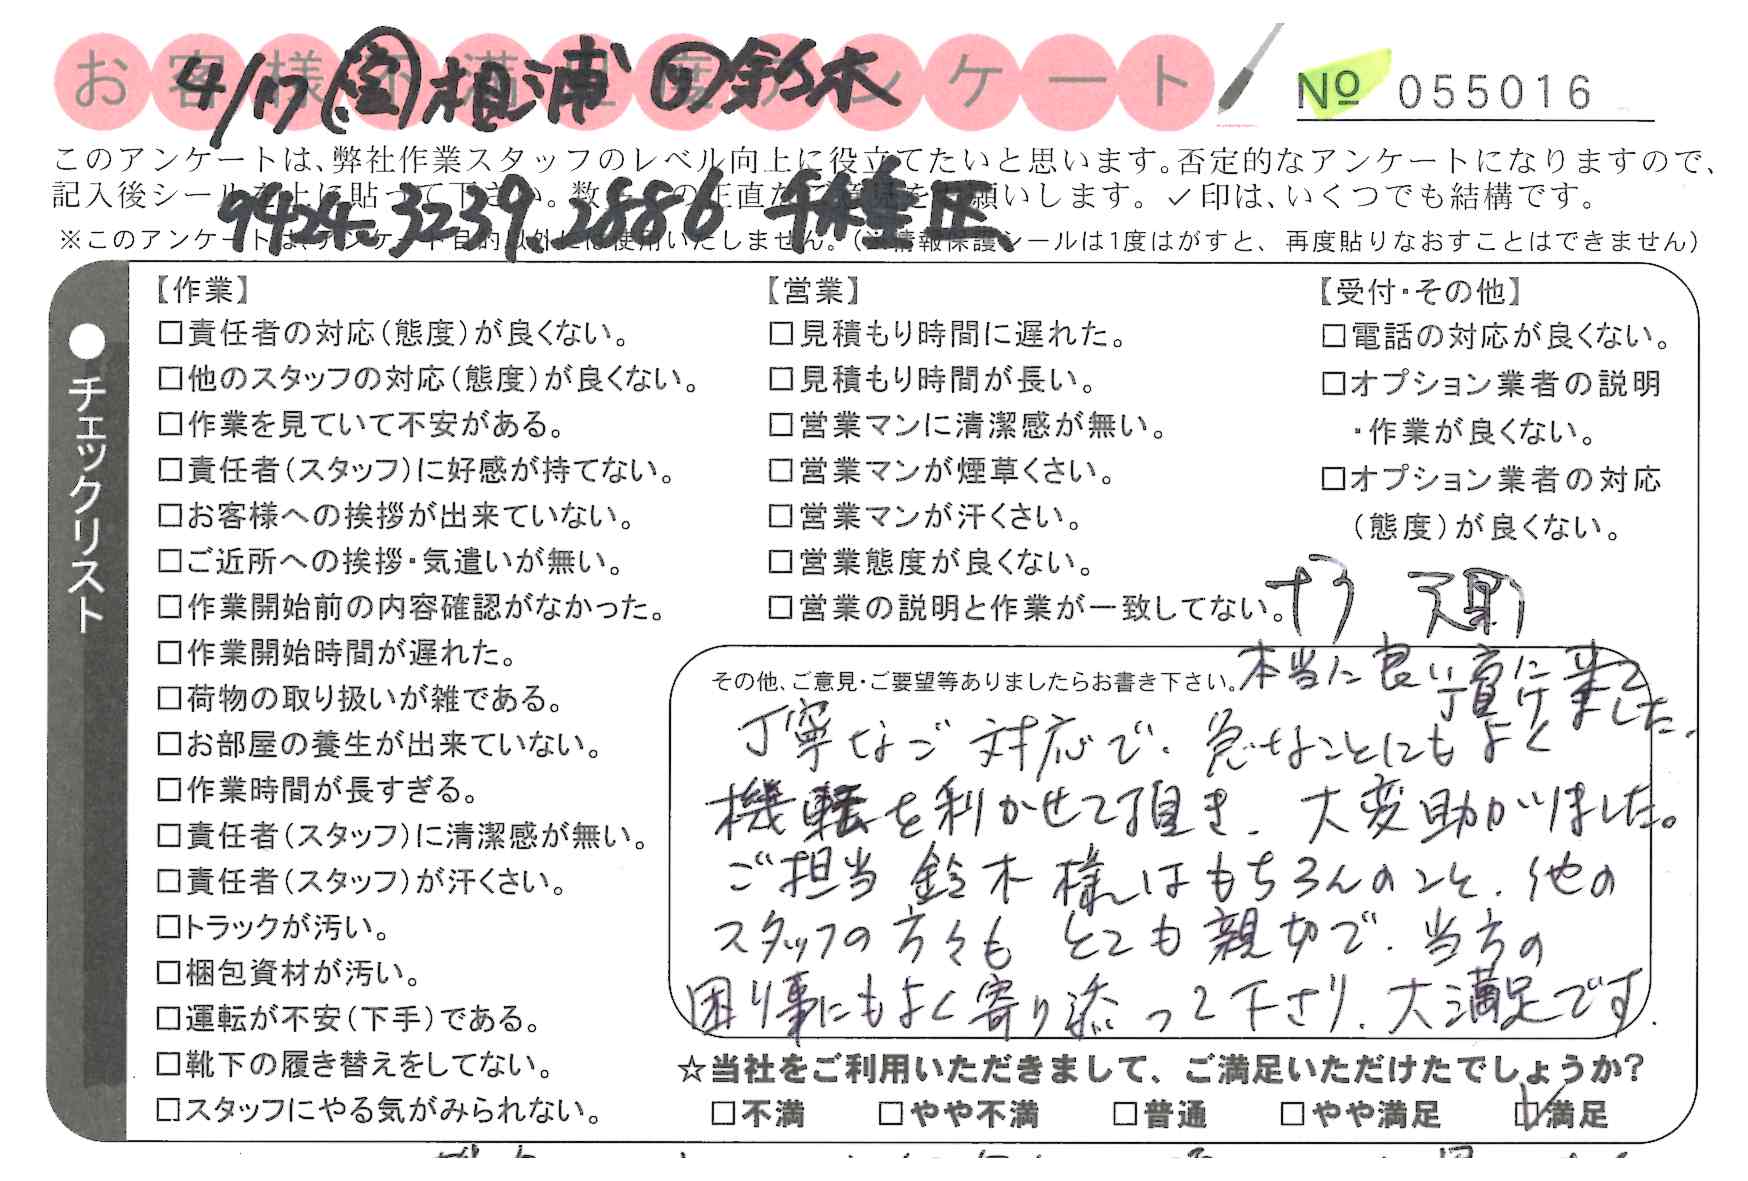 お客様不満足度アンケート
№ 055016
4/17 ㊎ 相浦 鈴木
9424. 3239. 2886 千種 正
このアンケートは、弊社作業スタッフのレベル向上に役立てたいと思います。否定的なアンケートになりますので、
記入後シールを上に貼って下さい。数多くの正直なご意見をお願いします。✓印は、いくつでも結構です。
※このアンケートは、アンケート目的以外には使用いたしません。(※情報保護シールは1度はがすと、再度貼りなおすことはできません)
●チェックリスト
【作業】
□責任者の対応(態度)が良くない。
□他のスタッフの対応(態度)が良くない。
□作業を見ていて不安がある。
□責任者(スタッフ)に好感が持てない。
□お客様への挨拶が出来ていない。
□ご近所への挨拶・気遣いが無い。
□作業開始前の内容確認がなかった。
□作業開始時間が遅れた。
□荷物の取り扱いが雑である。
□お部屋の養生が出来ていない。
□作業時間が長すぎる。
□責任者(スタッフ)に清潔感が無い。
□責任者(スタッフ)が汗くさい。
□トラックが汚い。
□梱包資材が汚い。
□運転が不安(下手)である。
□靴下の履き替えをしてない。
□スタッフにやる気がみられない。
【営業】
□見積もり時間に遅れた。
□見積もり時間が長い。
□営業マンに清潔感が無い。
□営業マンが煙草くさい。
□営業マンが汗くさい。
□営業態度が良くない。
□営業の説明と作業が一致してない。
【受付・その他】
□電話の対応が良くない。
□オプション業者の説明
・作業が良くない。
□オプション業者の対応
(態度)が良くない。
その他、ご意見・ご要望等ありましたらお書き下さい。
本当に良い方に来て
頂けました。
丁寧なご対応で、急なことにもよく
機転を利かせて頂き、大変助かりました。
ご担当 鈴木様はもちろんのこと、他の
スタッフの方々も とても親切で、当方の
困り事にもよく寄り添って下さり、大満足です。
☆当社をご利用いただきまして、ご満足いただけたでしょうか?
□不満 □やや不満 □普通 □やや満足 ☑満足